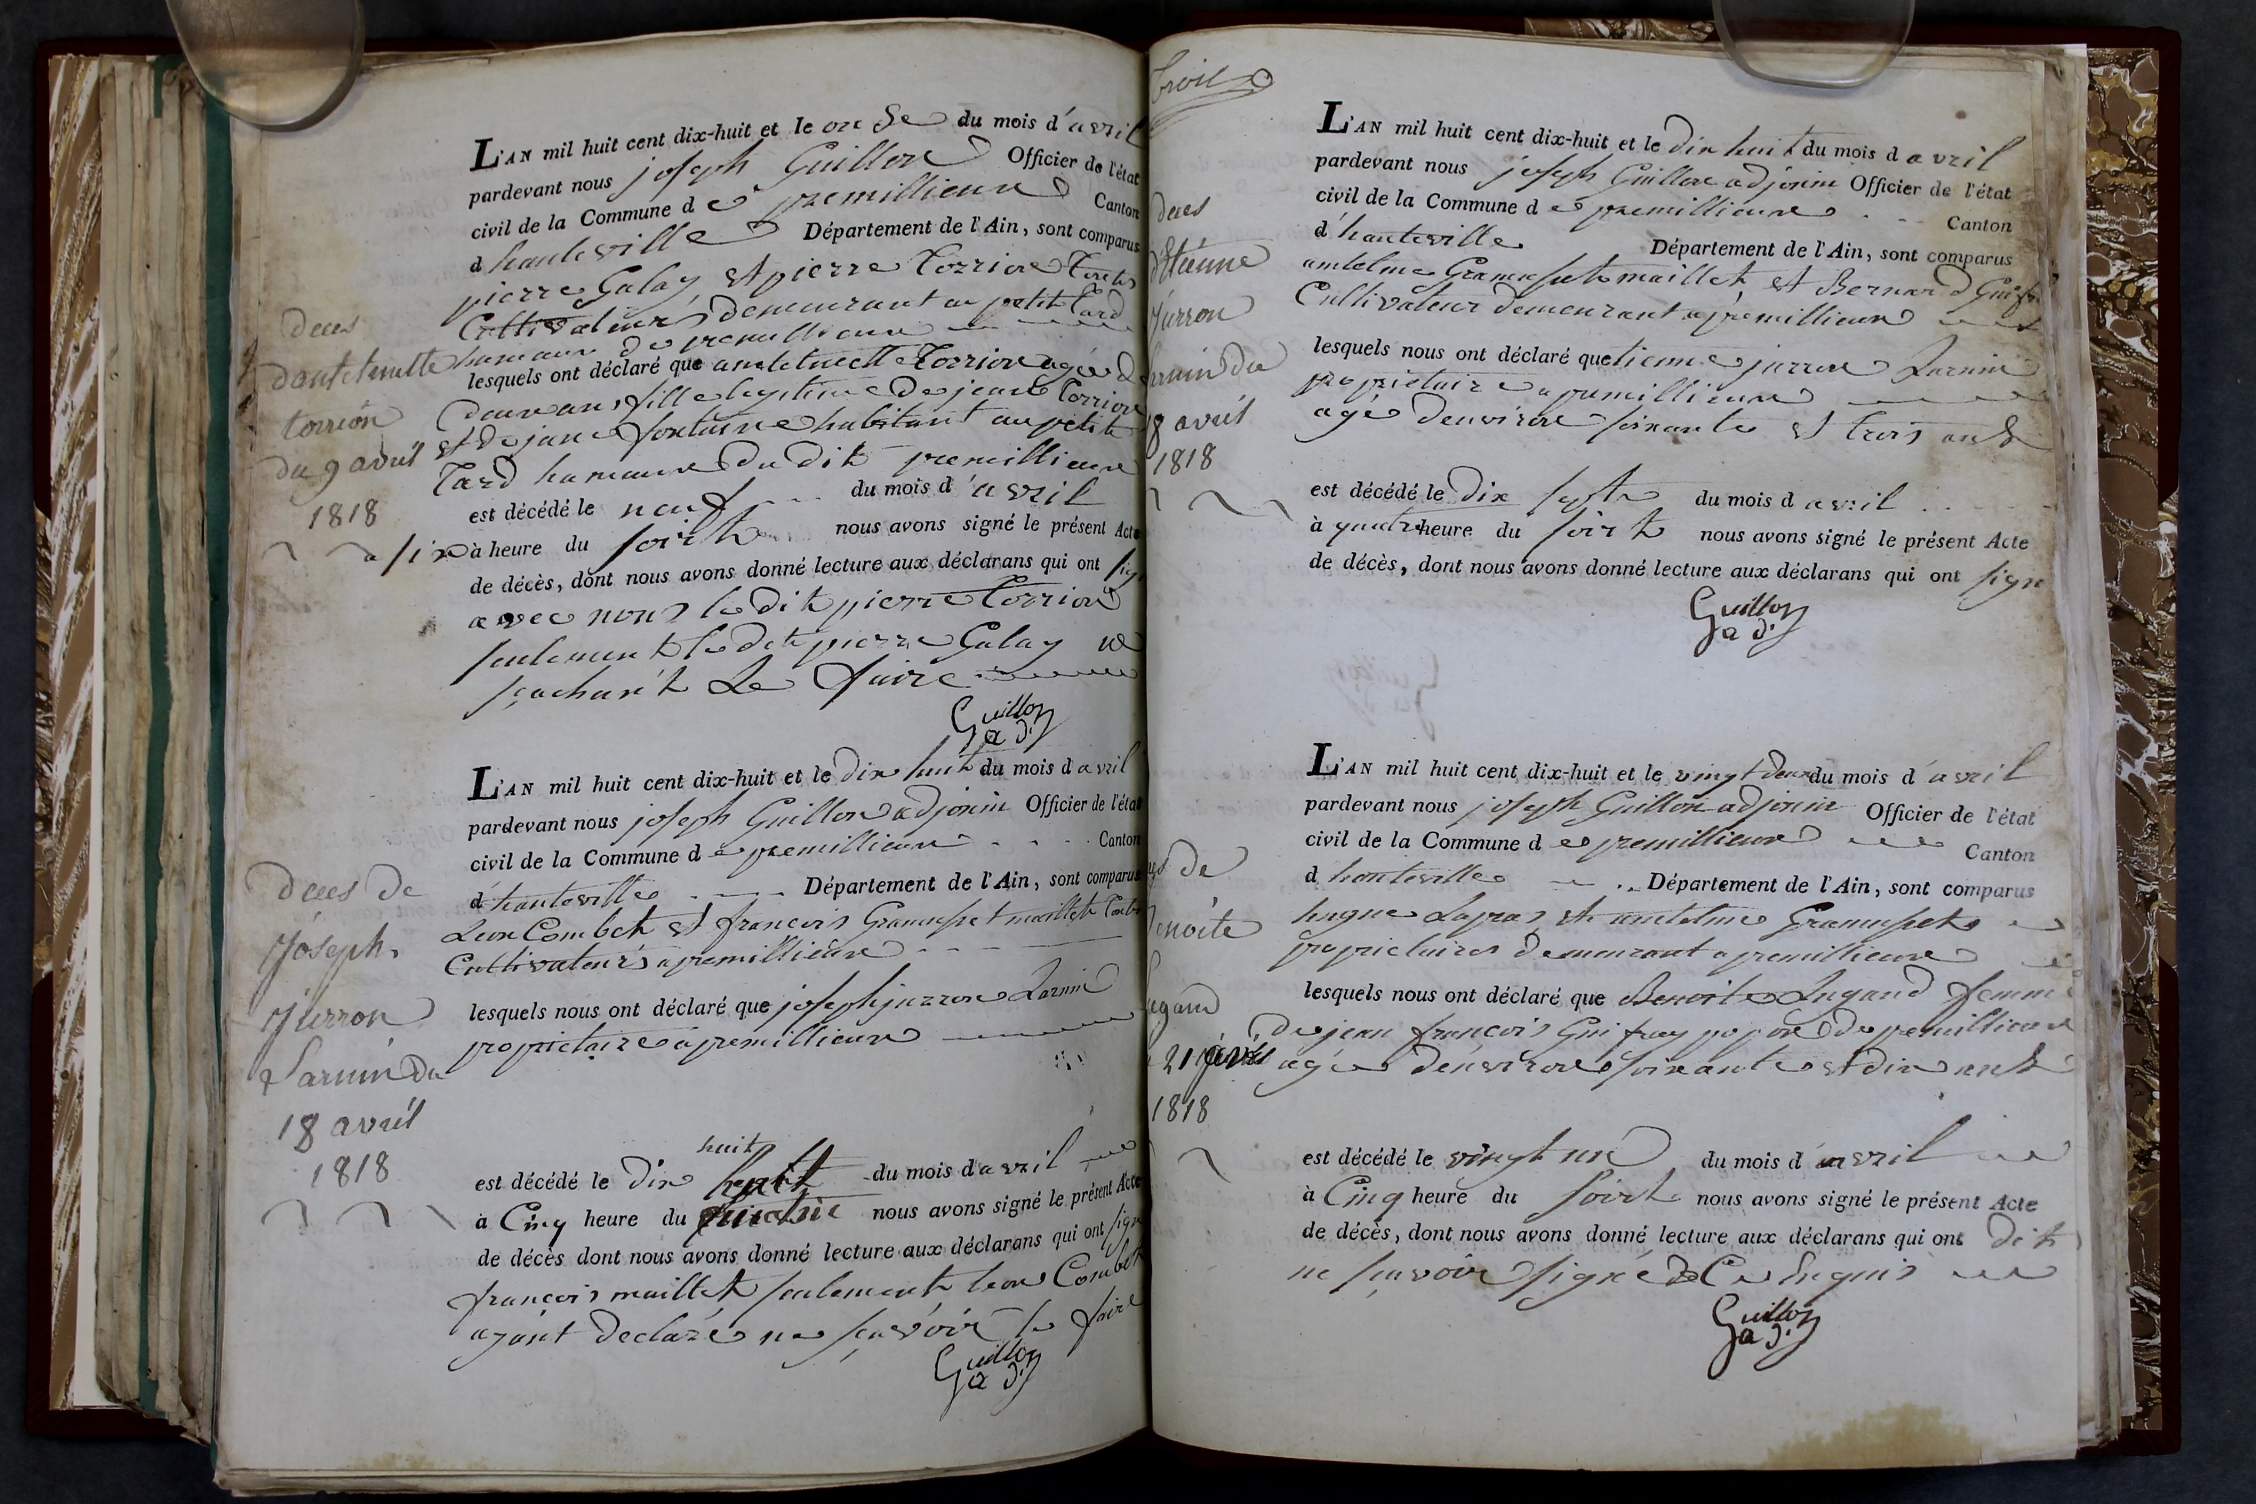 L'AN mil huit cent dix-huit et le onse du mois d'avril
pardevant nous joseph Guillon Officier de l'état
civil de la Commune de premillieux Canton
d hauteville Département de l'Ain, sont comparus
pierre Galay et pierre Torrion touts
Cultivateurs demeurant au petit Tard
hameaux de premillieux
lesquels ont déclaré que anteltmette Torrion agée d
douze ans fille legitime de jean Torrion
et de jane fontaine habitant au petit
Tard hameaux du dit premillieux
est décédé le neuf du mois d'avril
a six à heure du soirt nous avons signé le présent Acte
de décès, dont nous avons donné lecture aux déclarans qui ont signé
avec nous le dit pierre Torrion
seulement le dit pierre Galay ne
sçachant Le faire
Guillon
adj.
deces
torrión
du 9 avril
1818
L'AN mil huit cent dix-huit et le dix huit du mois d avril
pardevant nous joseph Guillon adjoint Officier de l'état
civil de la Commune de premillieux Canton
d'hauteville Département de l'Ain, sont comparus
Leon Combet et francois Gramusset maillet
Cultivateurs a premillieux
lesquels nous ont déclaré que joseph jurron Larnin
proprietaire a premillieux
huit
est décédé le dix du mois d avril
à Cinq heure du nous avons signé le présent Acte
de décès dont nous avons donné lecture aux déclarans qui ont signé
françois maillet seulement leon Combet
ayant declaré ne sçavoir le faire
Guillon
adj.
deces de
Jóseph
Jurron
Larnin du
18 avril
1818
trois
L'AN mil huit cent dix-huit et le dix huit du mois d avril
pardevant nous joseph Guillon adjoint Officier de l'état
civil de la Commune de premillieux Canton
d'hauteville Département de l'Ain, sont comparus
antelme Gramusset maillet et Bernard
Cultivateur demeurant a premillieux
lesquels nous ont déclaré que etienne jurron Larnin
proprietaire a premillieux
agé d'environ soixante et trois ans
est décédé le dix sept du mois d avril
à quatre heure du soirt nous avons signé le présent Acte
de décès, dont nous avons donné lecture aux déclarans qui ont signé
Guillon
adj.
deces
d'Etiénne
Jurron
Larnin du
8 avril
1818
L'AN mil huit cent dix-huit et le vingt deux du mois d'avril
pardevant nous joseph Guillon adjoint Officier de l'état
civil de la Commune de premillieux Canton
d hauteville Département de l'Ain, sont comparus
hugue Lapras et antelme Gramusset
proprietaires demeurant a premillieux
lesquels nous ont déclaré que Benoite Lugand femme
de jean françois Guifray popon de premillieux
agée d'environ soixante et dix ans
est décédé le vingt un du mois d avril
à Cinq heure du soirt nous avons signé le présent Acte
de décès, dont nous avons donné lecture aux déclarans qui ont dit
ne sçavoir signé de Ce Enquis
Guillon
adj.
de
enoite
ugand
21 avril
1818